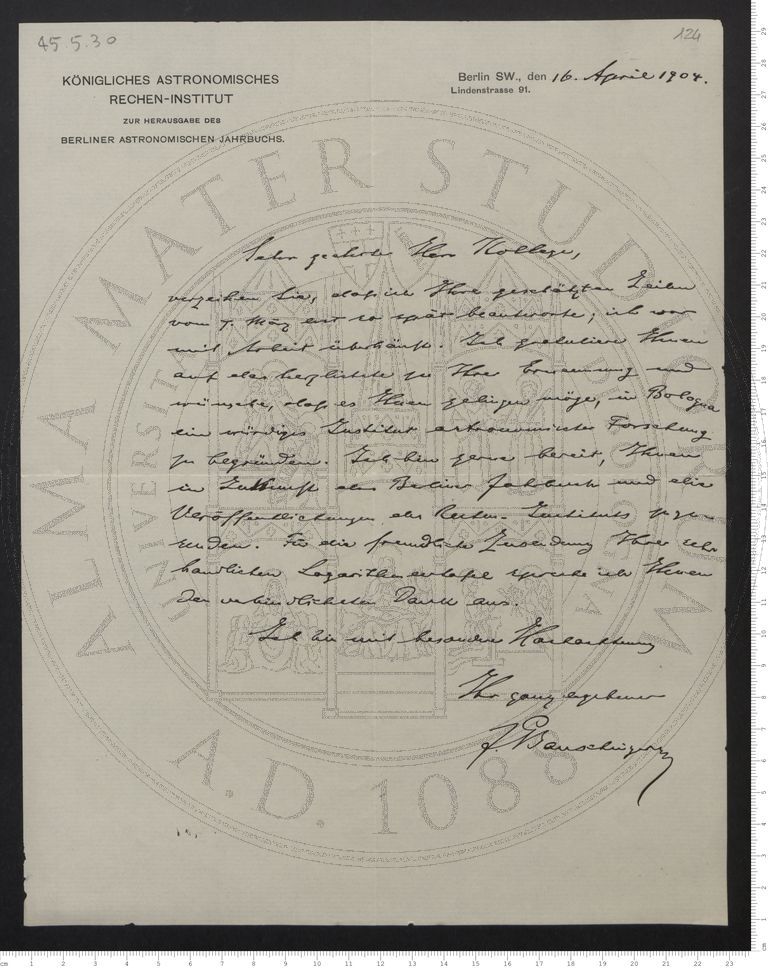 45.5.30
124
KÖNIGLICHES ASTRONOMISCHES
RECHEN-INSTITUT
ZUR HERAUSGABE DES
BERLINER ASTRONOMISCHEN JAHRBUCHS.
Berlin SW., den 16. April 1904.
Lindenstrasse 91.
Sehr geehrter Herr Kollege,
verzeihen Sie, dass ich Ihre geschätzten Zeilen
vom 7. März erst so spät beantworte; ich war
mit Arbeit überhäuft. Ich gratuliere Ihnen
auf das herzlichste zu Ihrer Ernennung und
wünsche, dass es Ihnen gelingen möge, in Bologna
ein würdiges Institut astronomischer Forschung
zu begründen. Ich bin gerne bereit, Ihnen
in Zukunft das Berliner Jahrbuch und die
Veröffentlichungen des Rechen-Instituts zuzu-
senden. Für die freundliche Zusendung Ihrer sehr
handlichen Logarithmentafel spreche ich Ihnen
den verbindlichsten Dank aus.
Ich bin mit besonderer Hochachtung
Ihr ganz ergebener
J. Bauschinger
ALMA MATER STUDIORUM
A.D. 1088